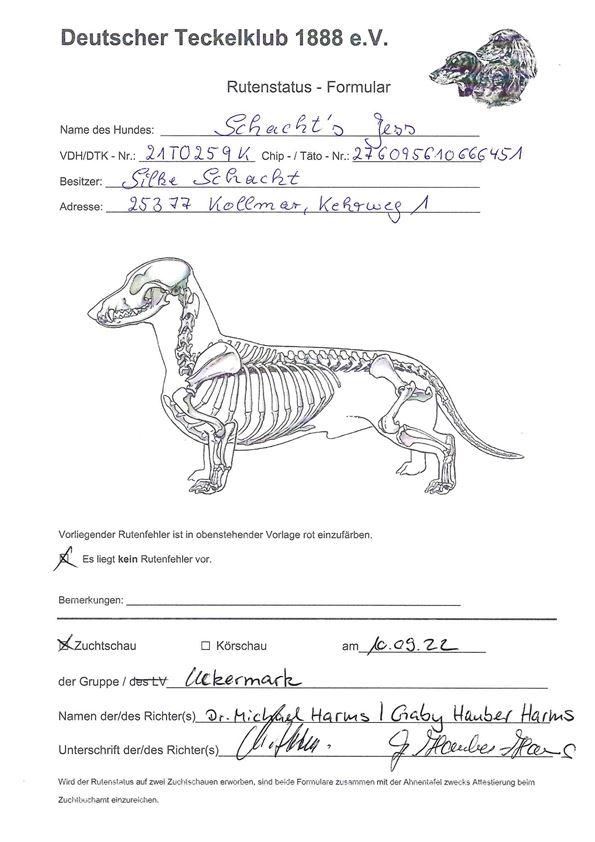 Deutscher Teckelklub 1888 e.V.
Rutenstatus - Formular
Name des Hundes: Schacht's Jess
VDH/DTK - Nr.: 21T0259K Chip - / Täto - Nr.: 276095610666451
Besitzer: Silke Schacht
Adresse: 25377 Kollmar, Kehrweg 1
Vorliegender Rutenfehler ist in obenstehender Vorlage rot einzufärben.
Es liegt kein Rutenfehler vor.
Bemerkungen:
Zuchtschau Körschau am 10.09.22
der Gruppe / des LV Uckermark
Namen der/des Richter(s) Dr. Michael Harms / Gaby Hauber Harms
Unterschrift der/des Richter(s)
Wird der Rutenstatus auf zwei Zuchtschauen erworben, sind beide Formulare zusammen mit der Ahnentafel zwecks Attestierung beim
Zuchtbuchamt einzureichen.